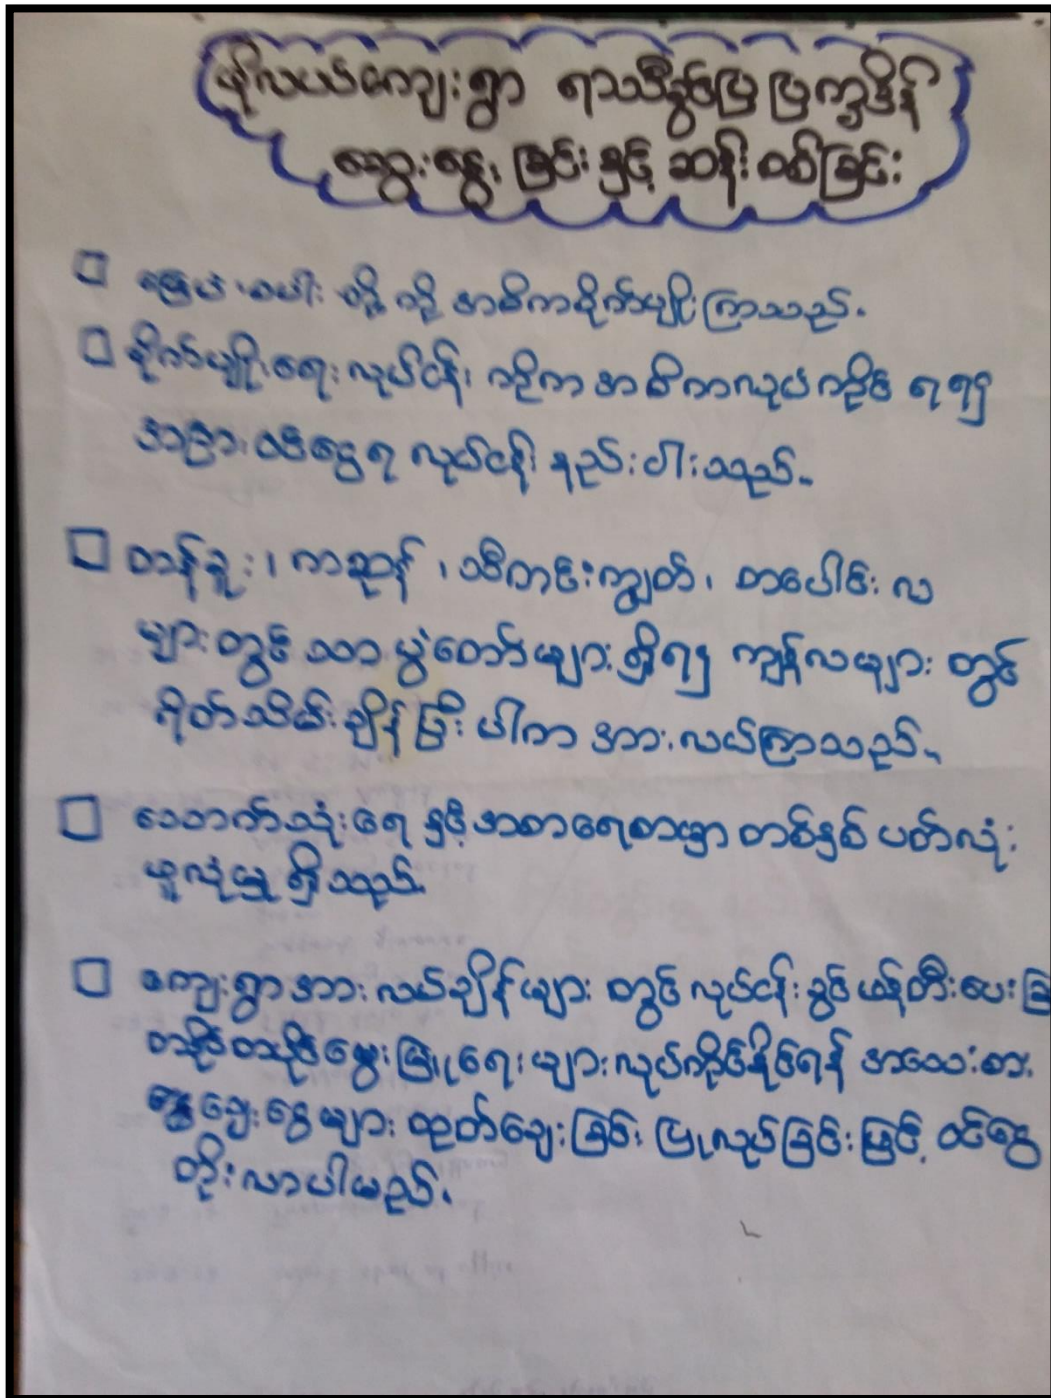 ဖိုလယ်ကျေးရွာ ရာသီခွင်ပြ ပြက္ခဒိန်
ဆွေးနွေး ခြင်း နှင့် ဆန်း စစ်ခြင်း
□ မြေပဲ ၊ စပါး တို့ ကို အဓိကစိုက်ပျိုးကြသည်.
□ စိုက်ပျိုးရေး လုပ်ငန်း ကိုက အဓိကလုပ်ကိုင် ရ၍
အခြား သီးငွေရ လုပ်ငန်း နည်းပါးသည်.
□ တန်ခူး ၊ ကဆုန် ၊ သီတင်းကျွတ် ၊ တပေါင်း လ
များ တွင် သာ ပွဲတော်များ ရှိရ၍ ကျန်လများ တွင်
ရိတ်သိမ်းချိန် ပြီး ပါက အား လပ်ကြသည်.
□ သောက်သုံးရေ နှင့် အစာရေစာမှာ တစ်နှစ် ပတ်လုံး
ဖူလုံမှု ရှိသည်.
□ ကျေးရွာအား လပ်ချိန်များ တွင် လုပ်ငန်း ခွင် ဖန်တီးပေး ခြ
တပိုင်တပိုင်မွေး မြူရေး များ လုပ်ကိုင်နိုင်ရန် အသေးစား
ချေးငွေများ ထုတ်ချေးခြင်း ပြုလုပ်ခြင်း ဖြင့် ဝင်ငွေ
တိုး လာပါမည်.